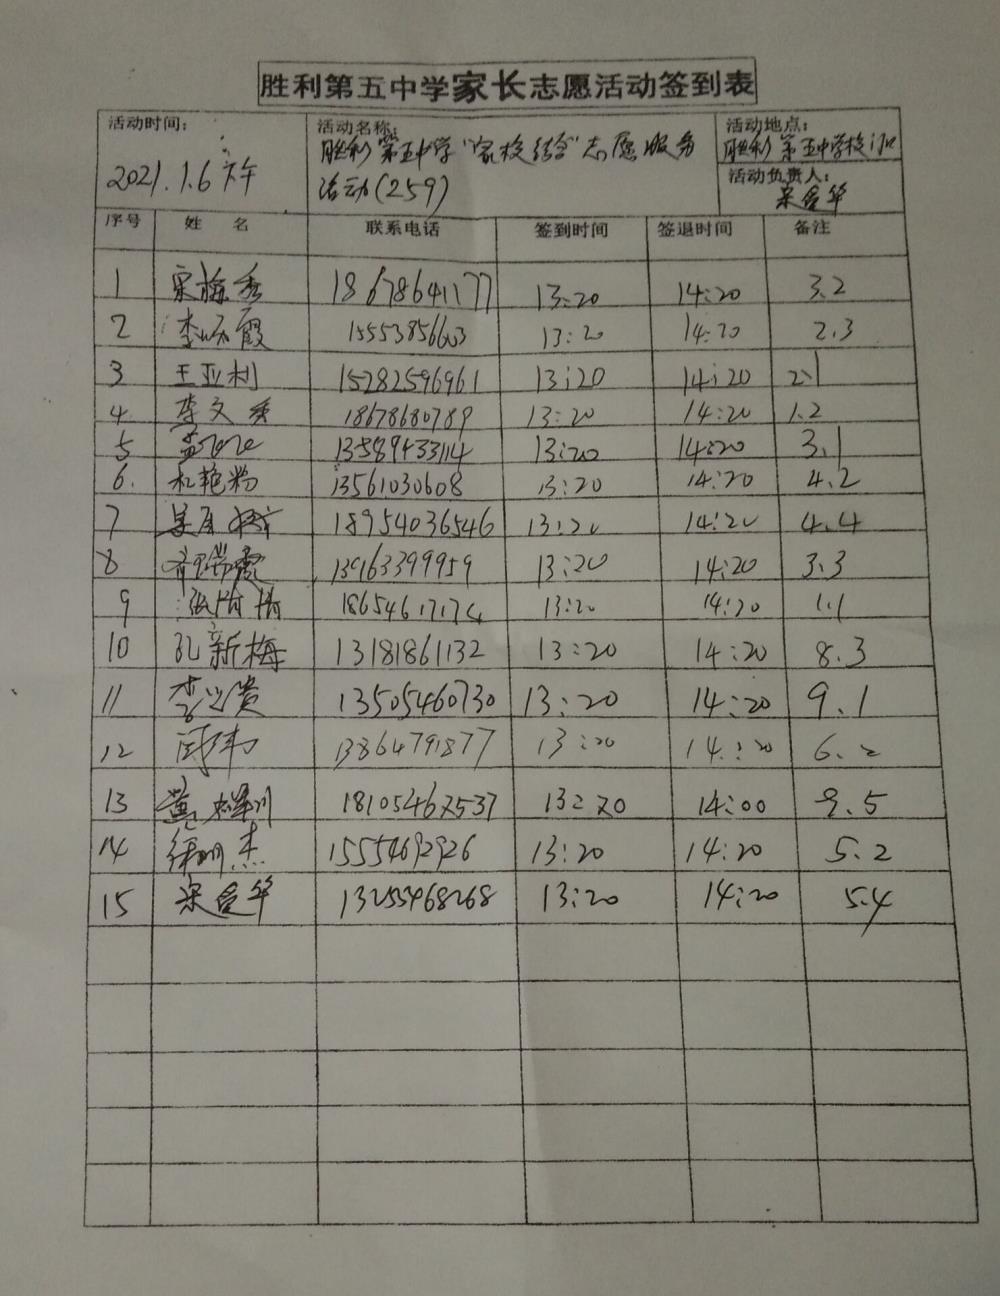 胜利第五中学家长志愿活动签到表
活动时间： 活动名称： 活动地点：
2021.1.6 下午 胜利第五中学“家校结合”志愿服务 胜利第五中学校门口
活动(259) 活动负责人：
宋爱华
序号 姓 名 联系电话 签到时间 签退时间 备注
1 宋梅秀 18678641177 13:20 14:20 3.2
2 李 霞 15553856603 13:20 14:20 2.3
3 王亚利 15282596961 13:20 14:20 2.1
4 李文秀 18678680789 13:20 14:20 1.2
5 13589433114 13:20 14:20 3.1
6. 艳粉 13561030608 13:20 14:20 4.2
7 18954036546 13:20 14:20 4.4
8 13963399959 13:20 14:20 3.3
9 张 13:20 14:20 1.1
10 孔新梅 13181861132 13:20 14:20 8.3
11 李 贵 13505460730 13:20 14:20 9.1
12 周伟 13864791877 13:20 14:20 6.2
13 黄 18105462537 13:20 14:00 9.5
14 徐明杰 15554692926 13:20 14:20 5.2
15 宋爱华 13255468268 13:20 14:20 5.4